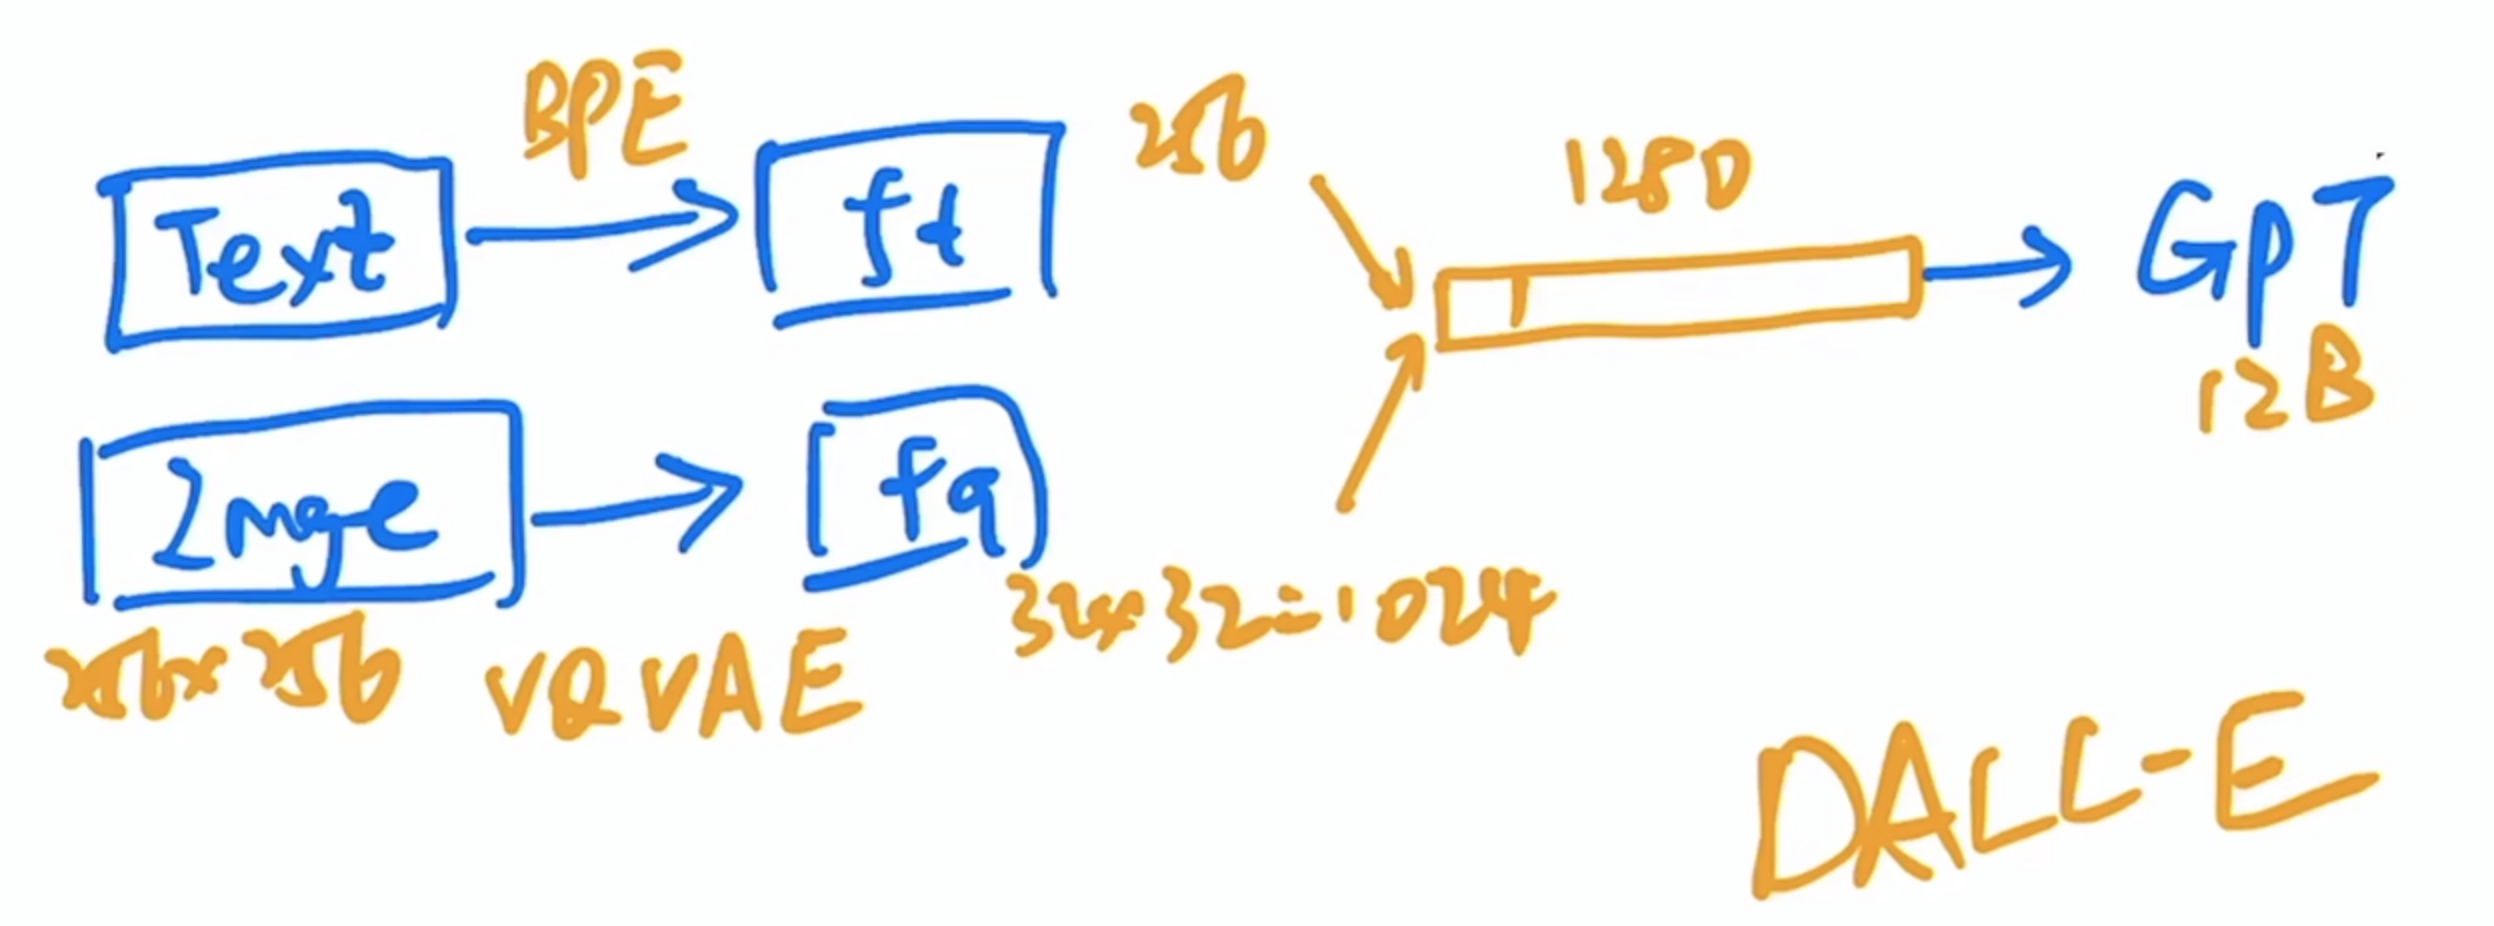 BPE
Text
ft
256
1280
GPT
12B
Image
fq
256x256
VQVAE
32x32=1024
DALL-E